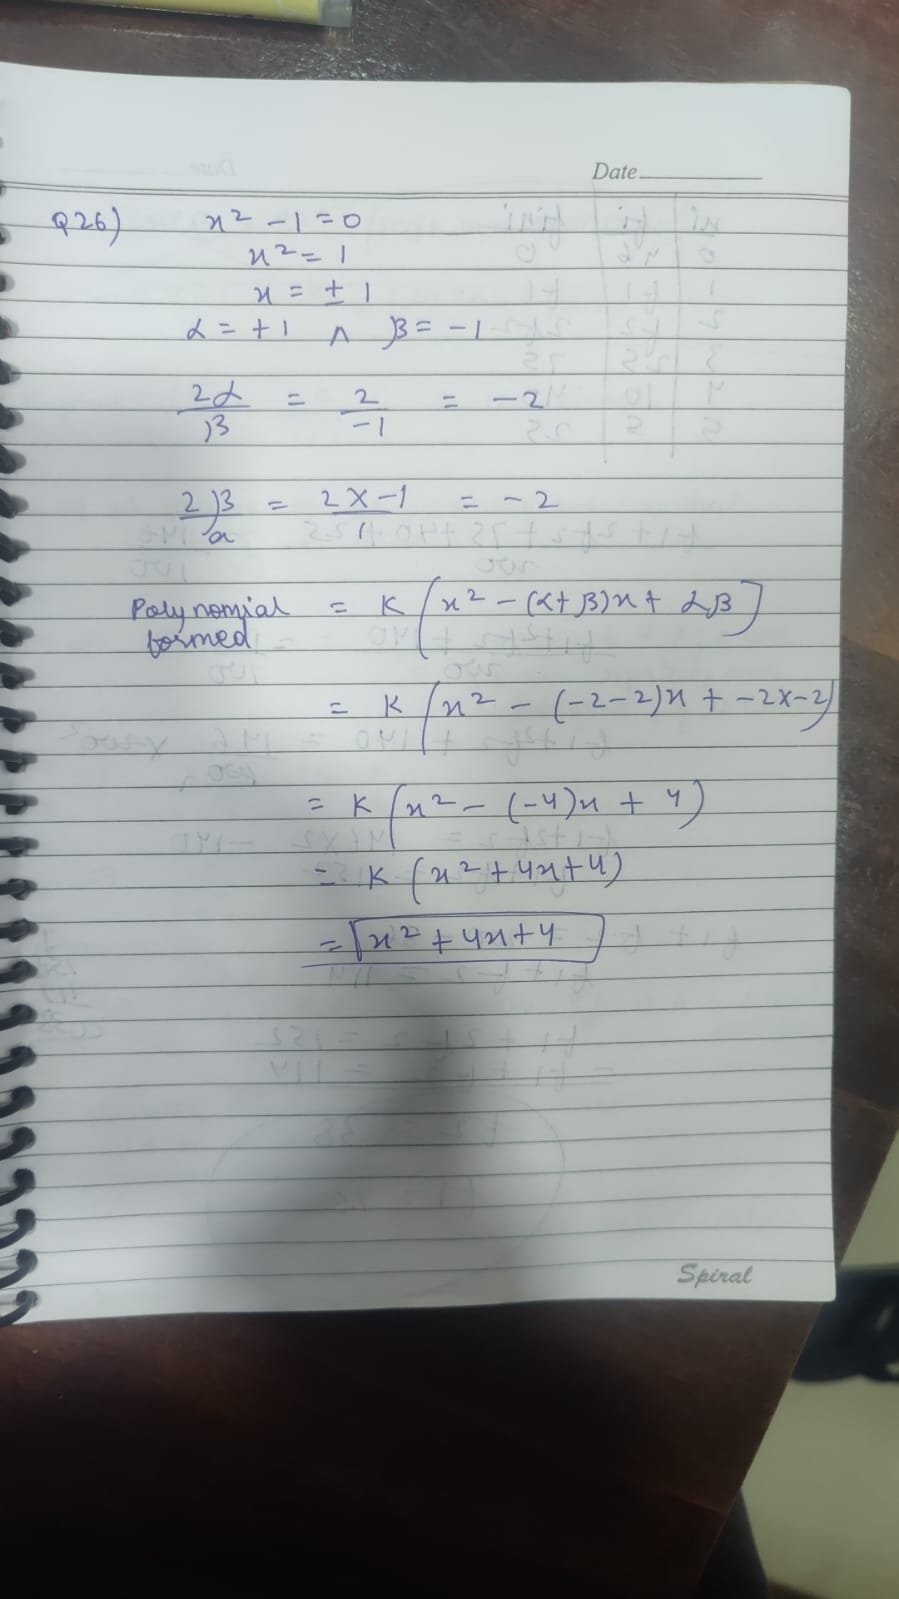 Date
Q26) x² - 1 = 0
x² = 1
x = ± 1
α = +1 ∧ β = -1
2α/β = 2/-1 = -2
2β/α = 2x-1/1 = -2
Polynomial formed = K (x² - (α+β)x + αβ)
= K (x² - (-2-2)x + -2x-2)
= K (x² - (-4)x + 4)
= K (x² + 4x + 4)
= x² + 4x + 4
Spiral